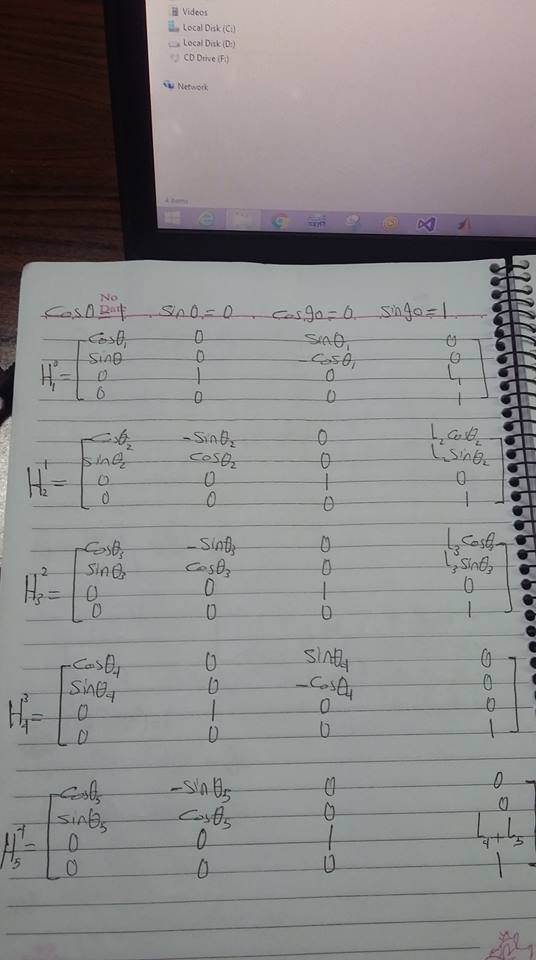 Videos
Local Disk (C:)
Local Disk (D:)
CD Drive (F:)
Network
4 items
No
Date
Cosθ=1 sinθ=0 Cos90=0 sin90=1
H₁⁰= Cosθ₁ 0 sinθ₁ 0
sinθ 0 -Cosθ₁ 0
0 1 0 L₁
0 0 0 1
H₂¹= Cosθ₂ -sinθ₂ 0 L₂Cosθ₂
sinθ₂ Cosθ₂ 0 L₂sinθ₂
0 0 1 0
0 0 0 1
H₃²= Cosθ₃ -sinθ₃ 0 L₃Cosθ₃
sinθ₃ Cosθ₃ 0 L₃sinθ₃
0 0 1 0
0 0 0 1
H₄³= Cosθ₄ 0 sinθ₄ 0
sinθ₄ 0 -Cosθ₄ 0
0 1 0 0
0 0 0 1
H₅⁴= Cosθ₅ -sinθ₅ 0 0
sinθ₅ Cosθ₅ 0 0
0 0 1 L₄+L₅
0 0 0 1